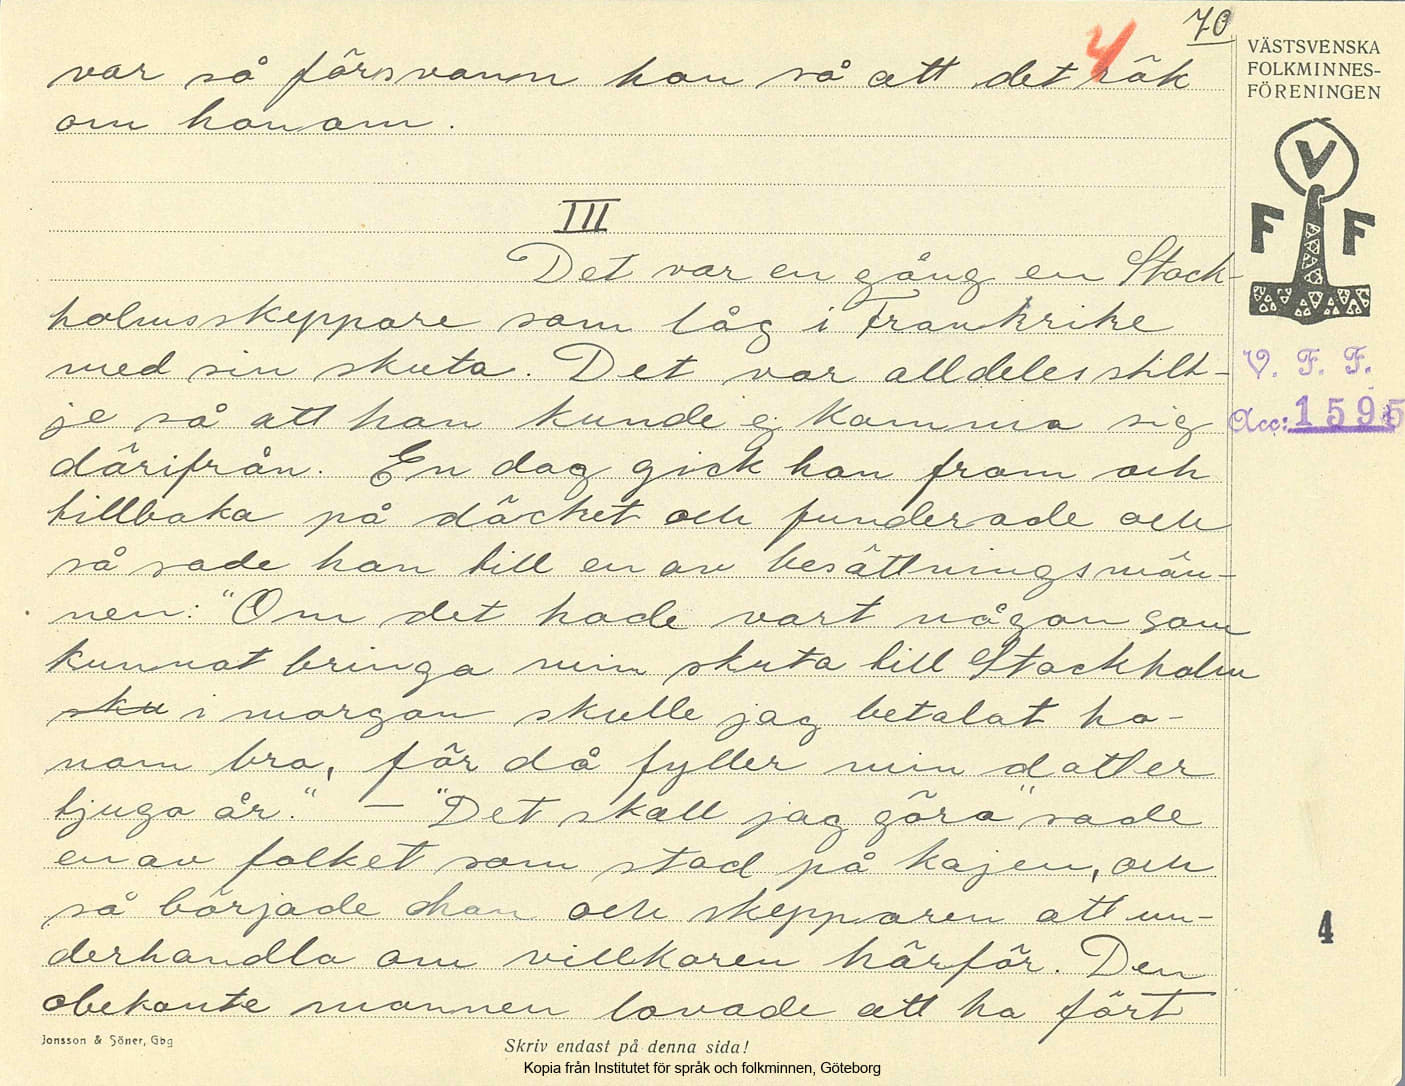 70
4
var så försvann han så att det rök
om honom.
III
Det var en gång en Stock-
holmsskeppare som låg i Frankrike
med sin skuta. Det var alldeles stilt-
je så att han kunde ej komma sig
därifrån. En dag gick han fram och
tillbaka på däcket och funderade och
så sade han till en av besättningsmän-
nen: "Om det hade vart någon som
kunnat bringa min skuta till Stockholm
sku i morgon skulle jag betalat ho-
nom bra, för då fyller min dotter
tjugo år." — "Det skall jag göra" sade
en av folket som stod på kajen, och
så började han och skepparen att un-
derhandla om villkoren härför. Den
obekante mannen lovade att ha fört
VÄSTSVENSKA
FOLKMINNES-
FÖRENINGEN
V
F F
V. F. F.
Acc: 1595
4
Jonsson & Söner, Gbg
Skriv endast på denna sida!
Kopia från Institutet för språk och folkminnen, Göteborg